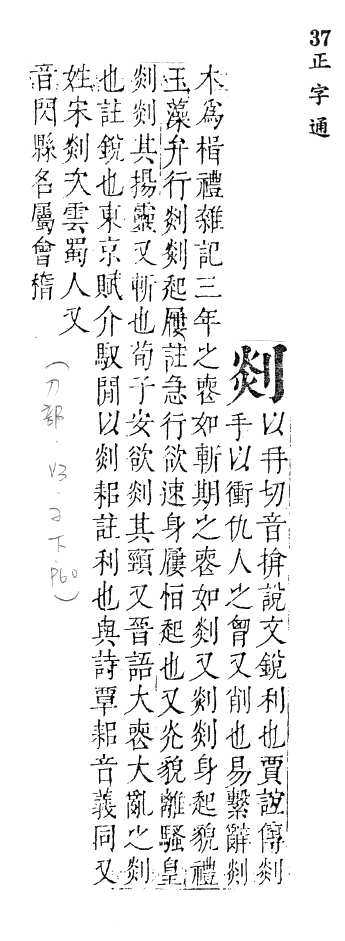 37 正字通
剡
以冄切音說文銳利也賈誼傳剡
手以衝仇人之胷又削也易繫辭剡
木為楫禮雜記三年之喪如斬期之喪如剡又剡剡身起貌禮
玉藻弁行剡剡起屨註急行欲速身屨恒起也又光貌離騷皇
剡剡其揚靈又斬也荀子安欲剡其頸又晉語大喪大亂之剡
也註銳也東京賦介馭閒以剡耜註利也與詩覃耜音義同又
姓宋剡次雲蜀人又
音閃縣名屬會稽
(刀部.V3.子下.P60)